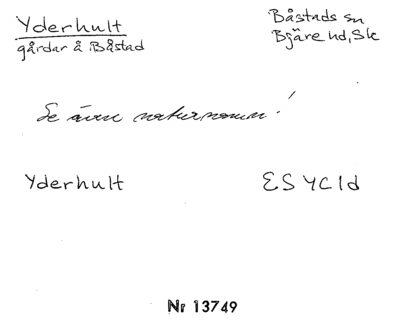 Yderhult
gårdar å Båstad
Båstads sn
Bjäre hd, Sk
Se även naturnamn!
Yderhult
ES 4C1d
Nr 13749